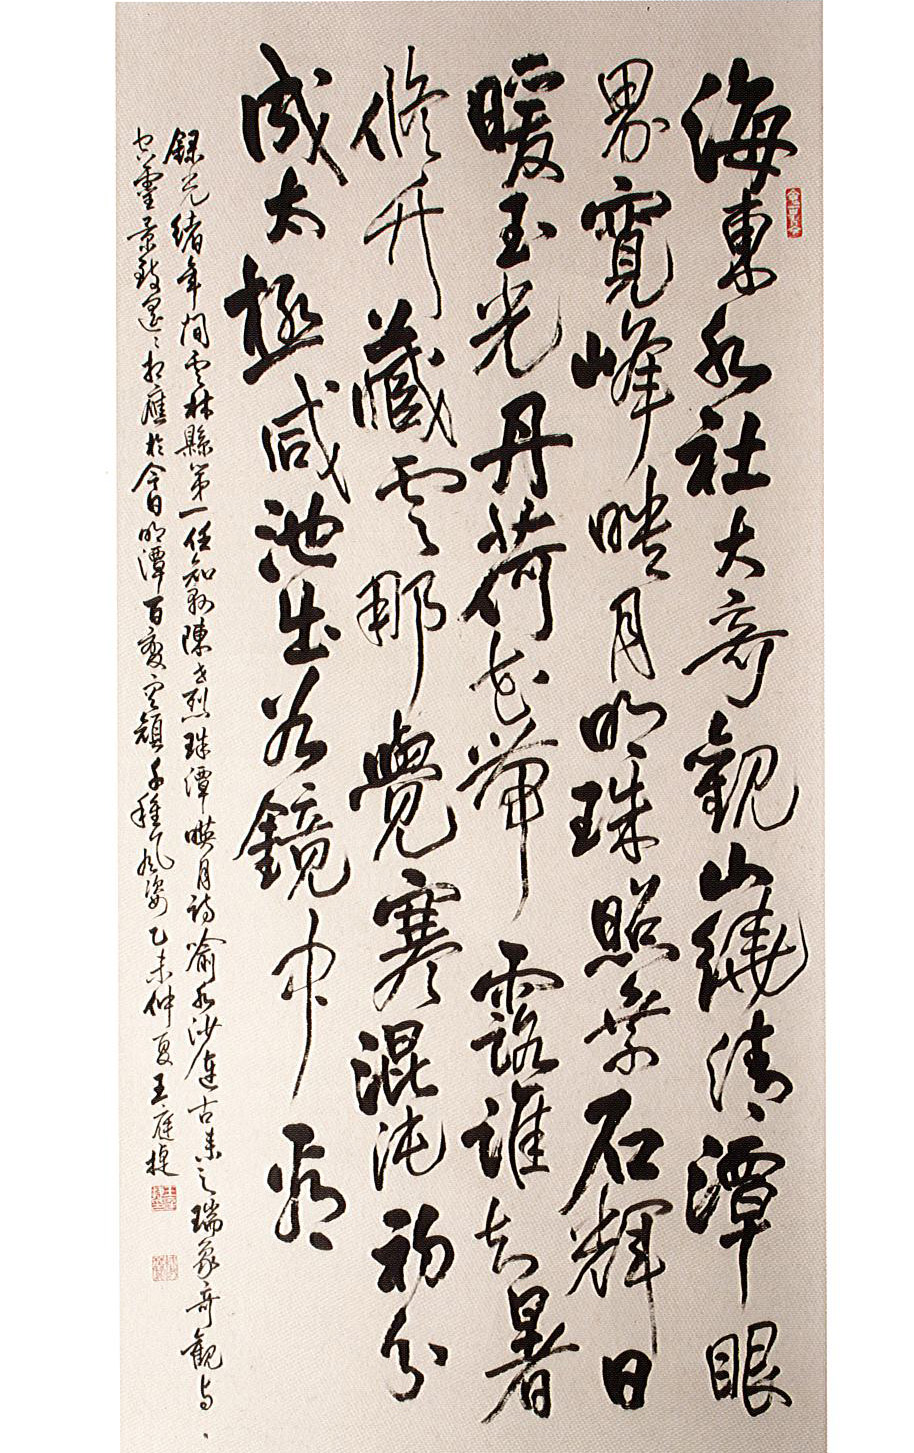 海東水社大奇觀山繞清潭眼
界寬峰映月明珠照乘石輝日
暖玉光丹荷花帶露誰知暑
修竹藏雲那覺寒混沌初分
成太極咸池出浴鏡中看
錄光緒年間雲林縣第一任知縣陳世烈珠潭映月詩喻水沙連古来之瑞象奇觀与
空靈景致遥遥相應於今日明潭百變容顏千種風姿乙未仲夏王庭捷